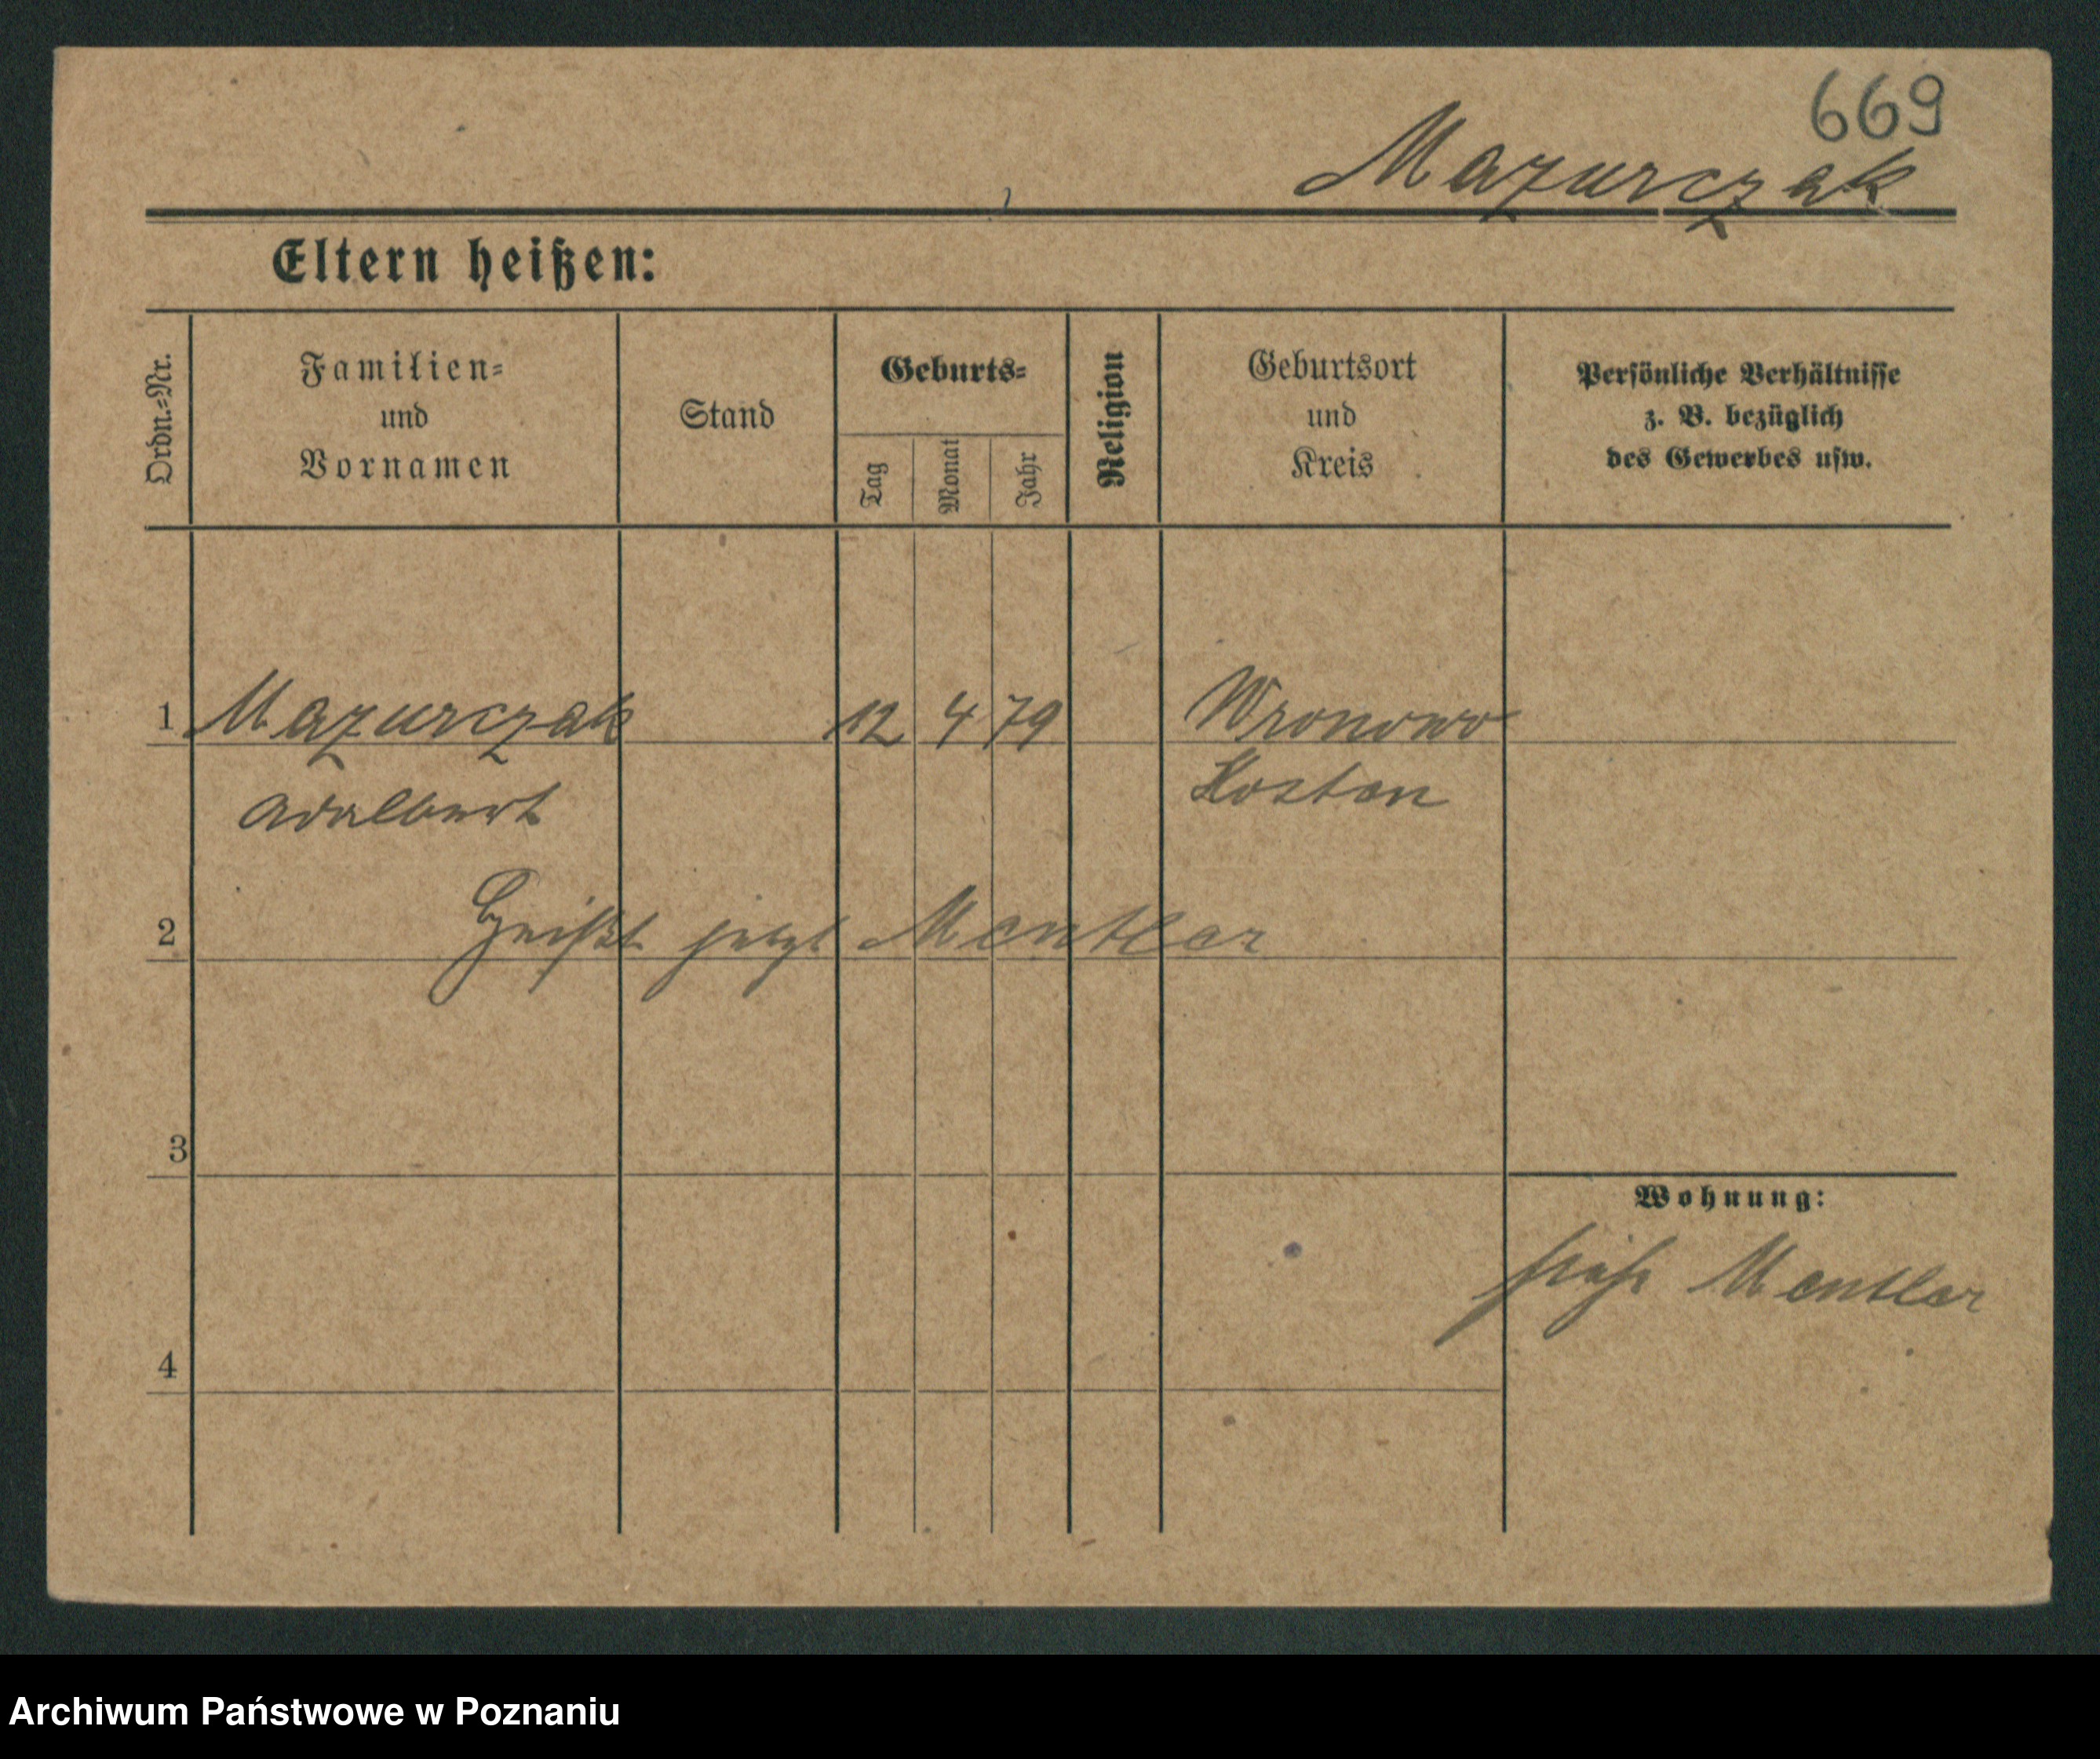 669
Mazurczak
Eltern heißen:
Ordn.=Nr.
Familien=
und
Vornamen
Stand
Geburts=
Tag
Monat
Jahr
Religion
Geburtsort
und
Kreis
Persönliche Verhältnisse
z. B. bezüglich
des Gewerbes usw.
1 Mazurczak 12 4 79 Wronowo
Adalbert Kosten
2 Heißt jetzt Mentler
3
Wohnung:
siehe Mentler
4
Archiwum Państwowe w Poznaniu